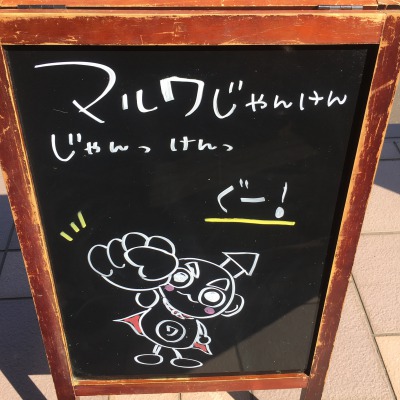 マルワじゃんけん
じゃんっ けんっ
ぐー!
ワ